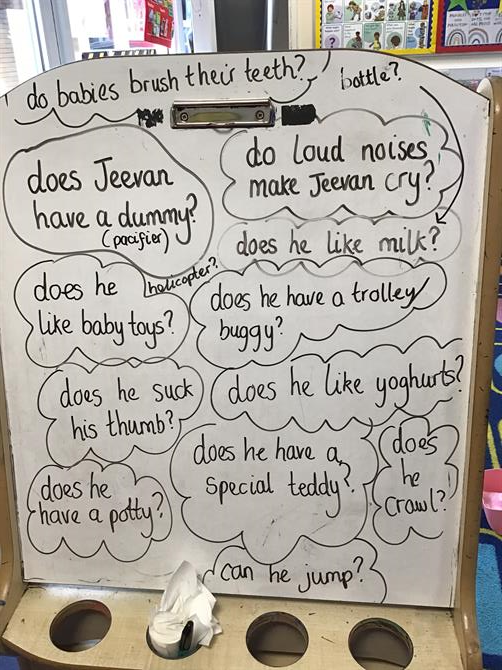 do babies brush their teeth?
bottle?
does Jeevan
have a dummy?
(pacifier)
do loud noises
make Jeevan cry?
does he like milk?
does he
like baby toys?
helicopter?
does he have a trolley/
buggy?
does he suck
his thumb?
does he like yoghurts?
does he have a
special teddy?
does
he
crawl?
does he
have a potty?
can he jump?